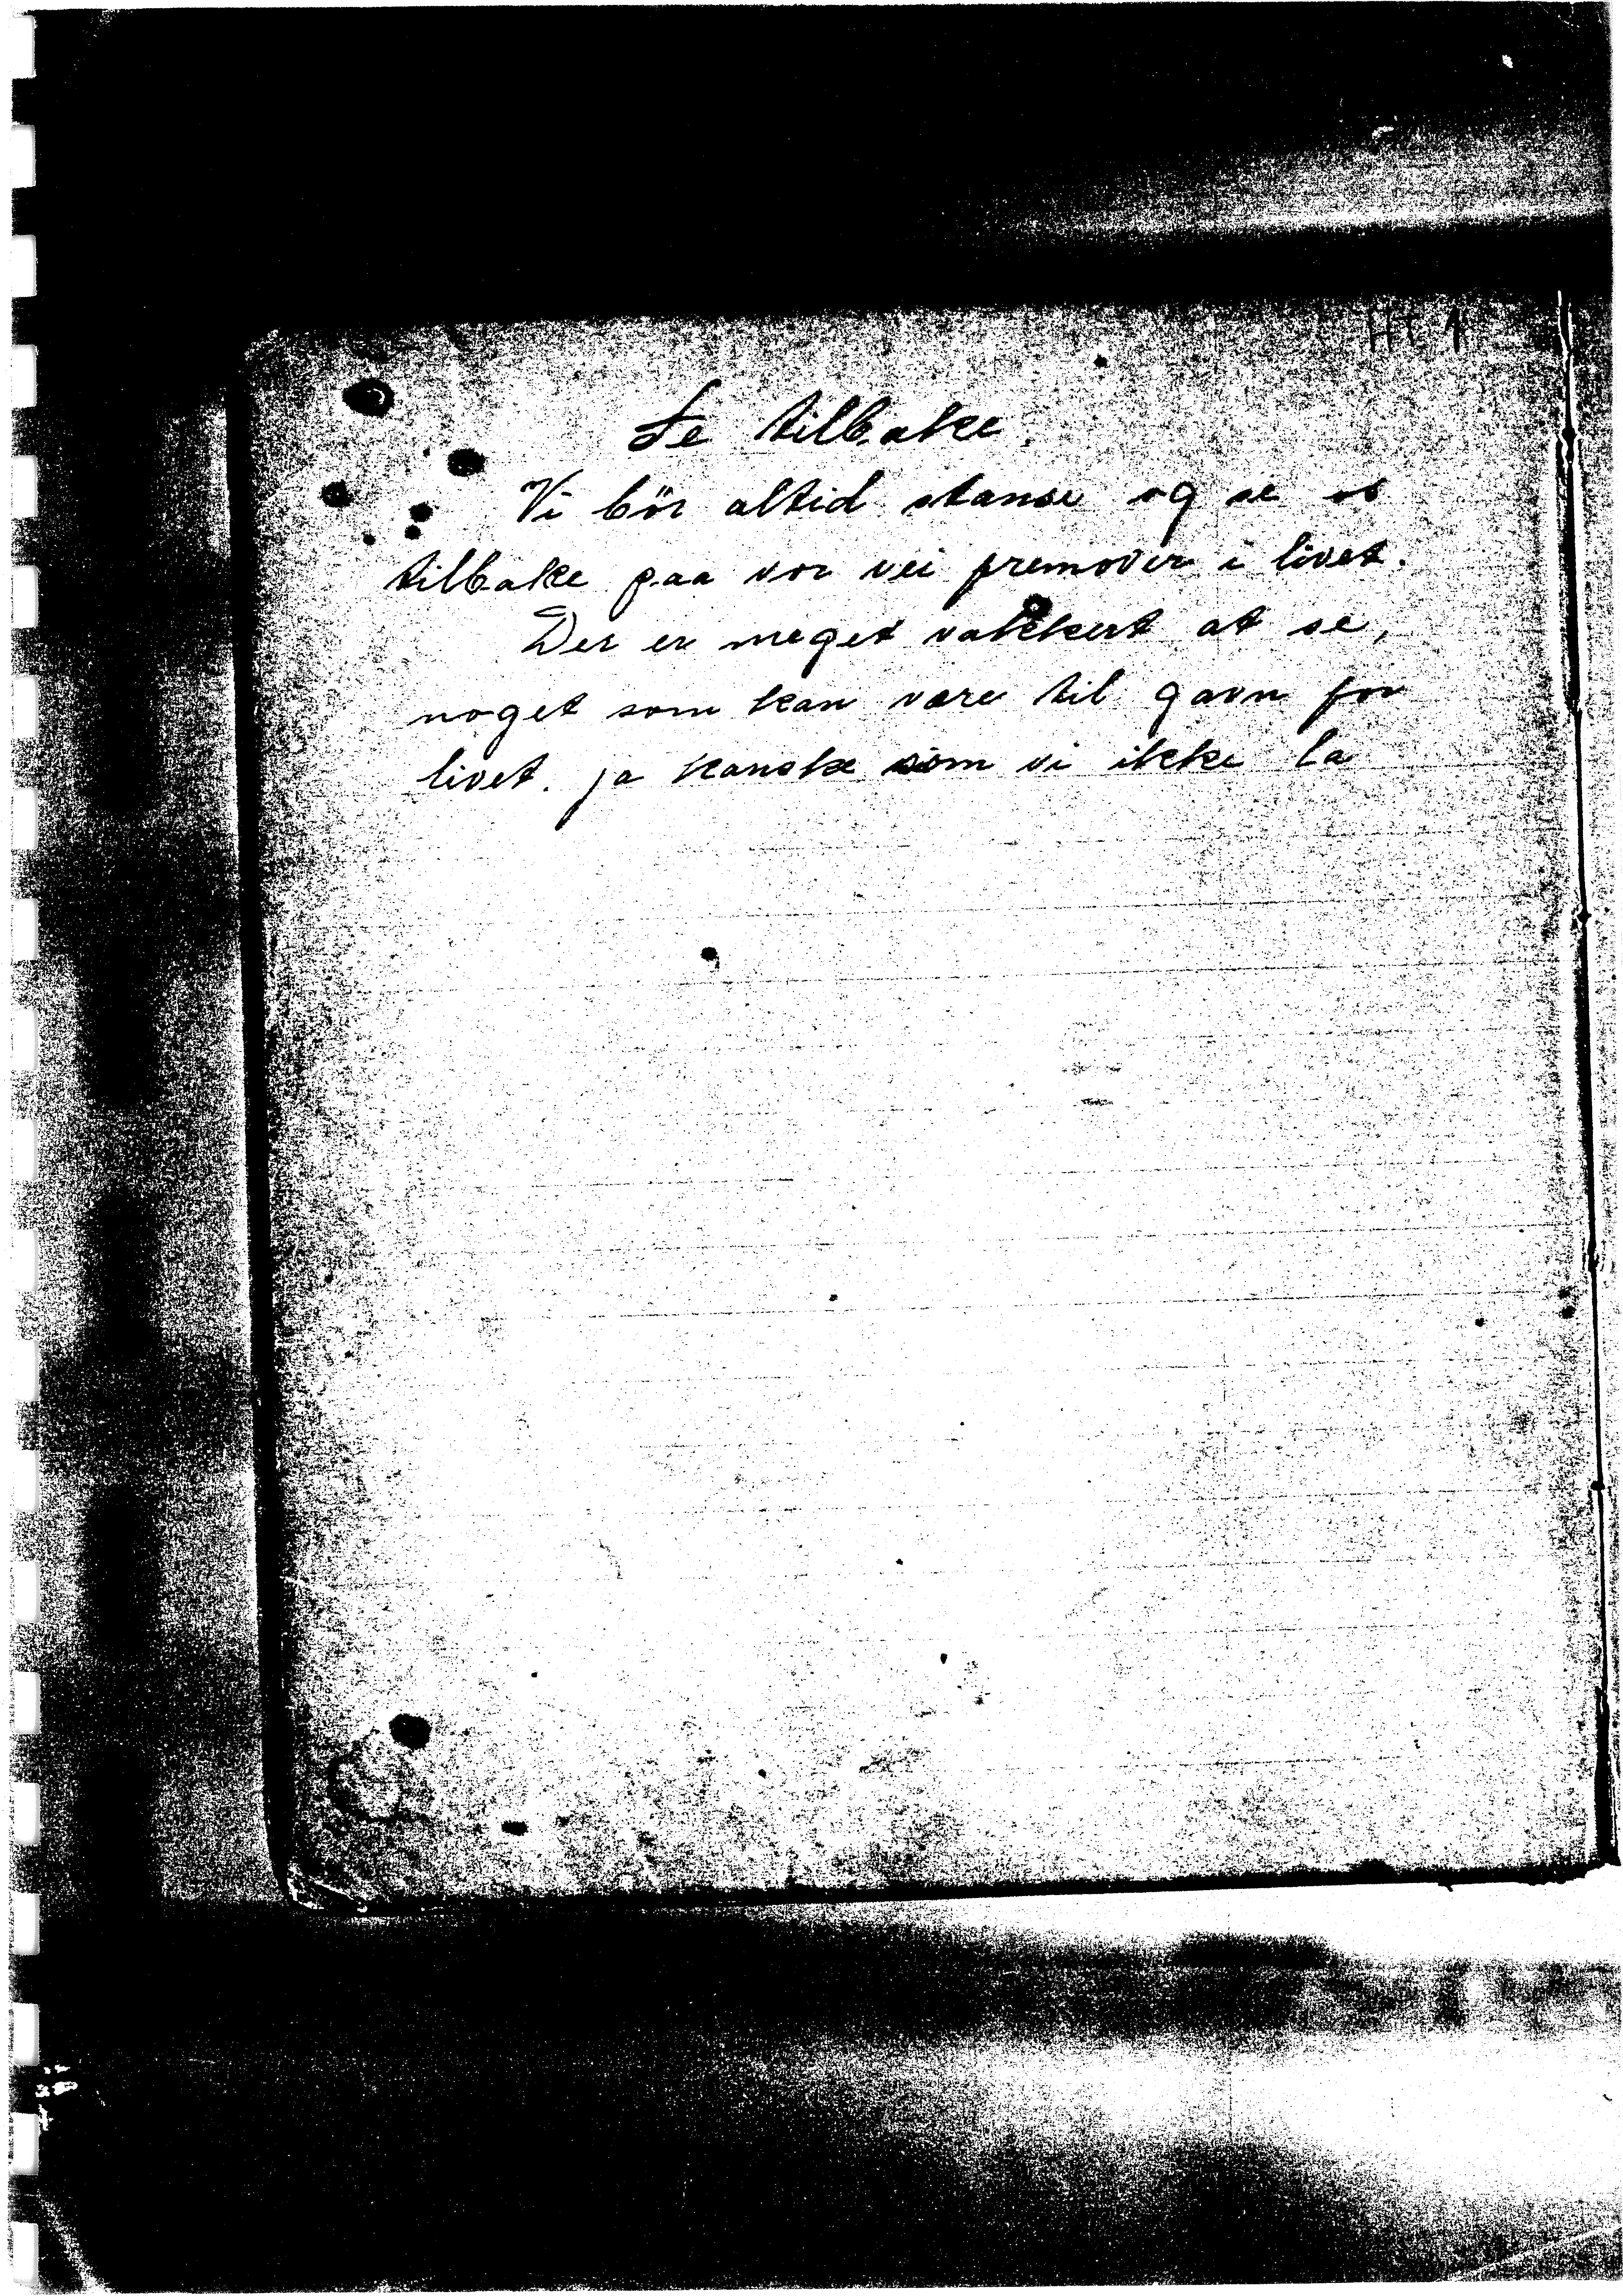 HT 1
Se tilbake.
Vi bör altid stanse og se os
tilbake paa vor vei fremover i livet.
Der er meget vakkert at se,
noget som kan være til gavn for
livet. ja kanske som vi ikke la